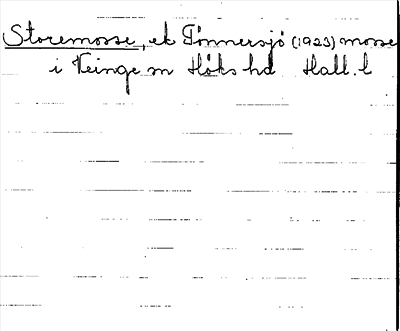 Storemosse, ek Tönnersjö (1923) mosse
i Veinge sn Höks hd Hall. l